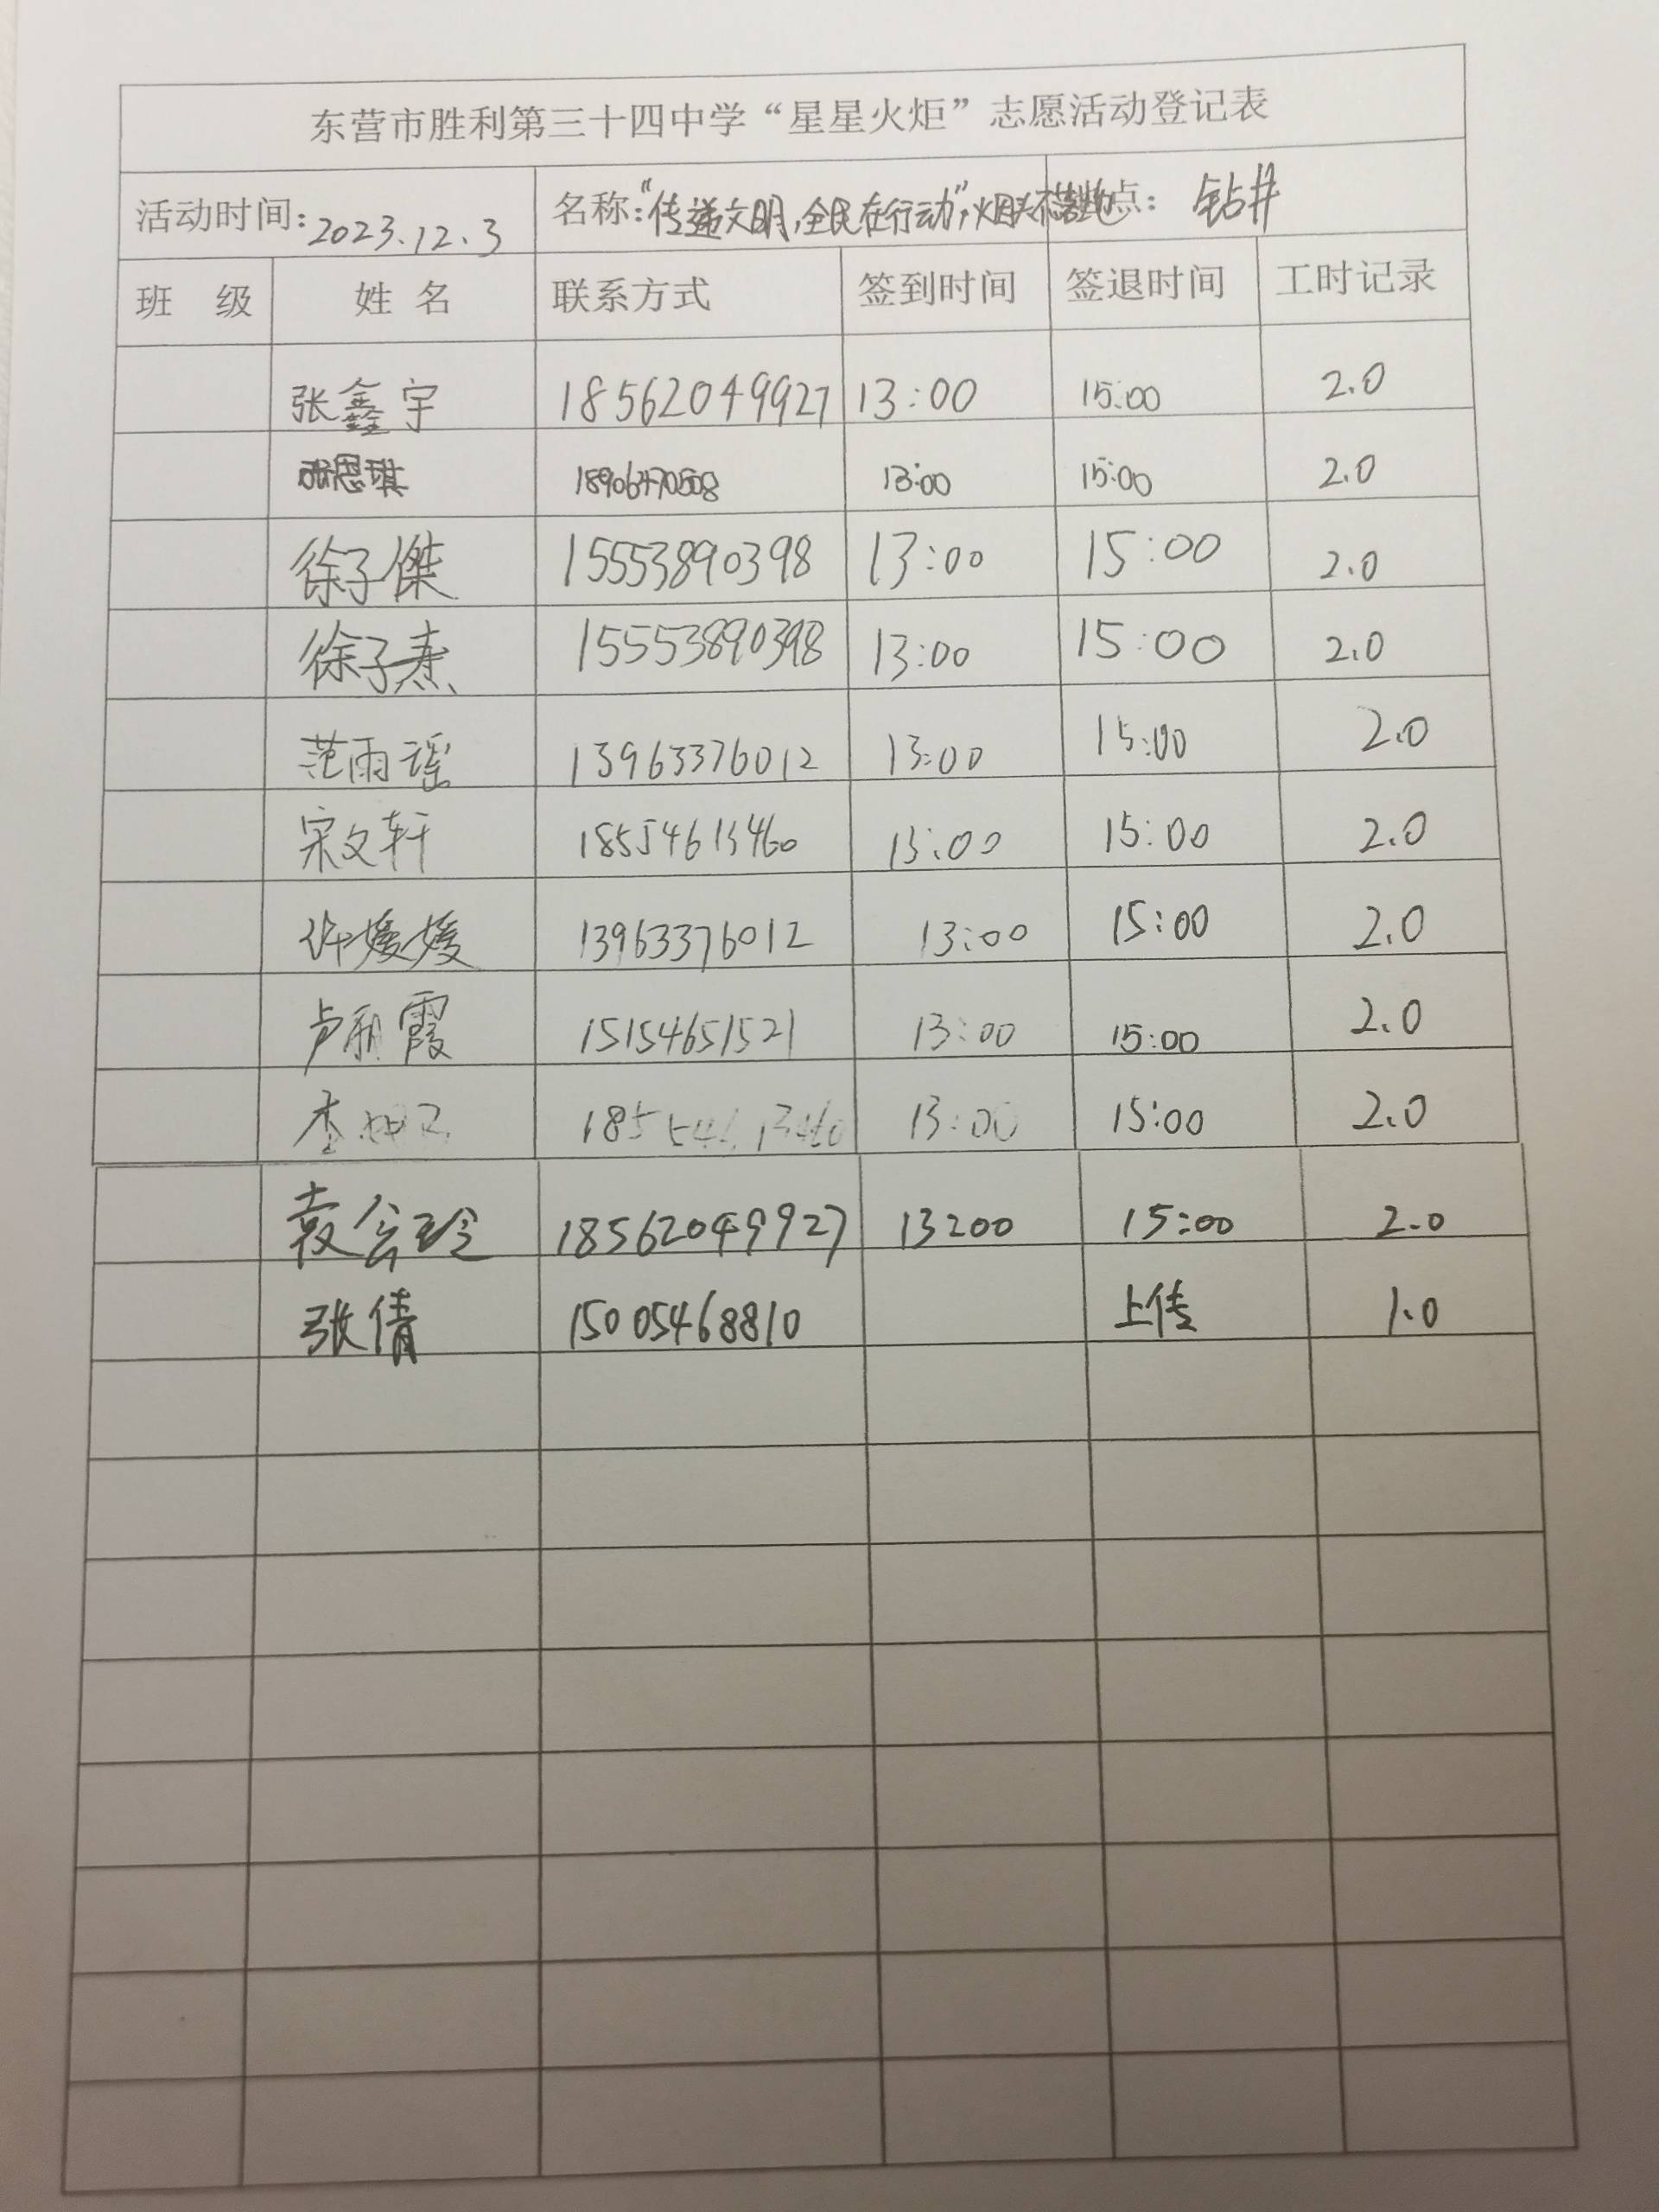 东营市胜利第三十四中学“星星火炬”志愿活动登记表
活动时间：2023.12.3 名称：“传递文明，全民在行动”，烟头不落地 地点： 钻井
班 级 姓 名 联系方式 签到时间 签退时间 工时记录
张鑫宇 18562049927 13:00 15:00 2.0
张恩琪 13:00 15:00 2.0
徐子傑 15553890398 13:00 15:00 2.0
徐子焘 15553890398 13:00 15:00 2.0
范雨瑶 13963376012 13:00 15:00 2.0
宋文轩 18554613460 13:00 15:00 2.0
许媛媛 13963376012 13:00 15:00 2.0
卢丽霞 15154651521 13:00 15:00 2.0
李 18554613460 13:00 15:00 2.0
袁会玲 18562049927 13:00 15:00 2.0
张倩 15005468810 上传 1.0